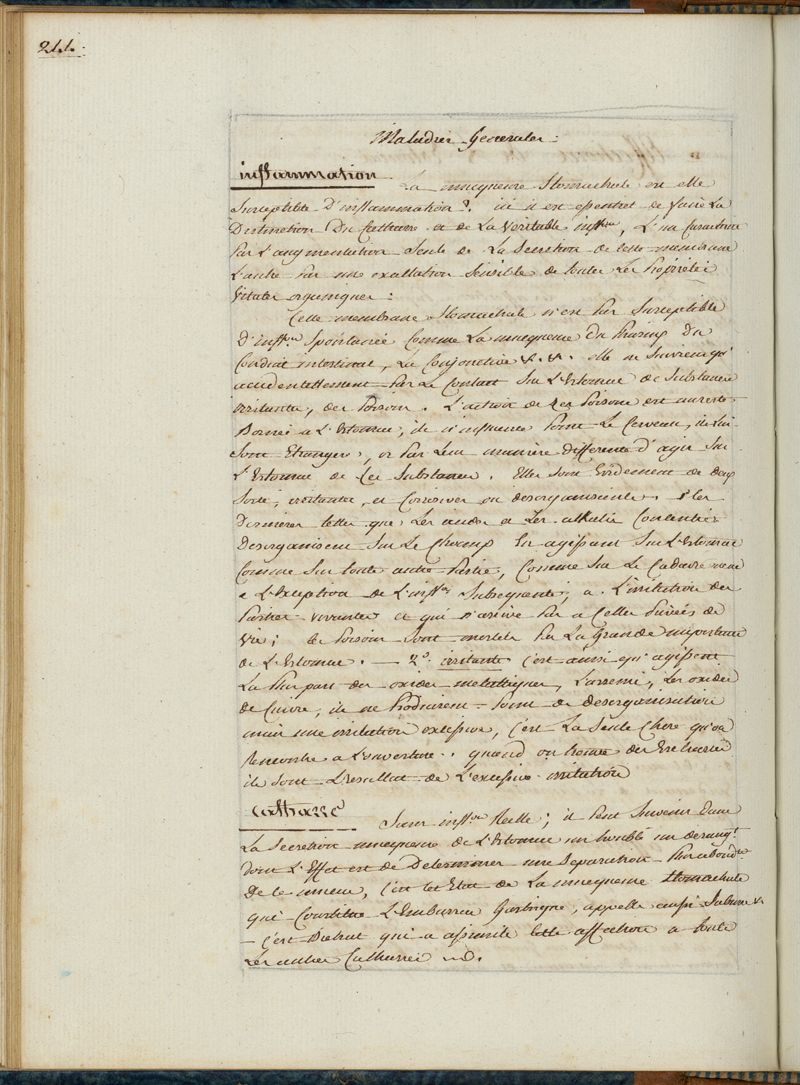 211.
Maladies Generales.
inflammation
La muqueuse Stomachale est elle
Susceptible D'inflammation ? ici il est essentiel de faire La
Distinction Du Catharre et de La Veritable inffon, L'un Caracterisé
Par L'augmentation Seule de La Secretion de cette membrane
L'autre Par une exaltation Sensible de toutes Les Propriétés
Vitales organiques :
Cette membrane Stomachale n'est Pas Susceptible
D'inffon Spontanée Comme La muqueuse Du Pharinx Du
Conduit intestinal, La Conjonctive &.&. elle ne Survient qu'
accidentellement Par Le Contact Sur L'Estomac de Substances
irritantes, des Poisons. L'action de Ces Poisons est au reste
Bornée a L'Estomac, ils n'influencent Point Le Cerveau, ils Lui
Sont Etrangers, or Par Leur maniere differente D'agir Sur
L'Estomac de Ces Substances. Elles Sont Evidemment de deux
Sorte, irritantes, et Corrosives ou desorganisantes. 1° Les
Dernieres telles que Les acides et Les alkalis Concentrés
Desorganisent Sur Le Champ En agissant Sur L'Estomac
Comme Sur toute autre Partie, Comme Sur Le Cadavre meme
a L'Exception de L'inffon Subsequente, a L'irritation des
Parties vivantes et qui n'arrive Pas a Celles Privées de
Vie ; les Poisons Sont mortels Par La Grande importance
de L'Estomac. — 2° irritants c'est ainsi qu'agissent
La Plus part des oxides metalliques, L'arsenic, Les oxides
de Cuivre, ils ne Produisent Point de desorganisation
mais une irritation excessive, c'est La Seule Chose qu'on
Rencontre a L'ouverture. quand on trouve des Escharres
ils Sont L'resultat de L'excessive irritation
Catharre
Sans inffon Reelle ; il Peut Survenir Dans
La Secretion muqueuse de L'Estomac un trouble un derangt
dont L'Effet est de Determiner une Separation Plus abondte
De ce mucus, C'est cet Etat de La muqueuse Stomachale
qui Constitue L'Embarras Gastrique, appellé aussi Saburre &.
— c'est Bichat qui a assimilé cette affection a toutes
Les autres Catharres